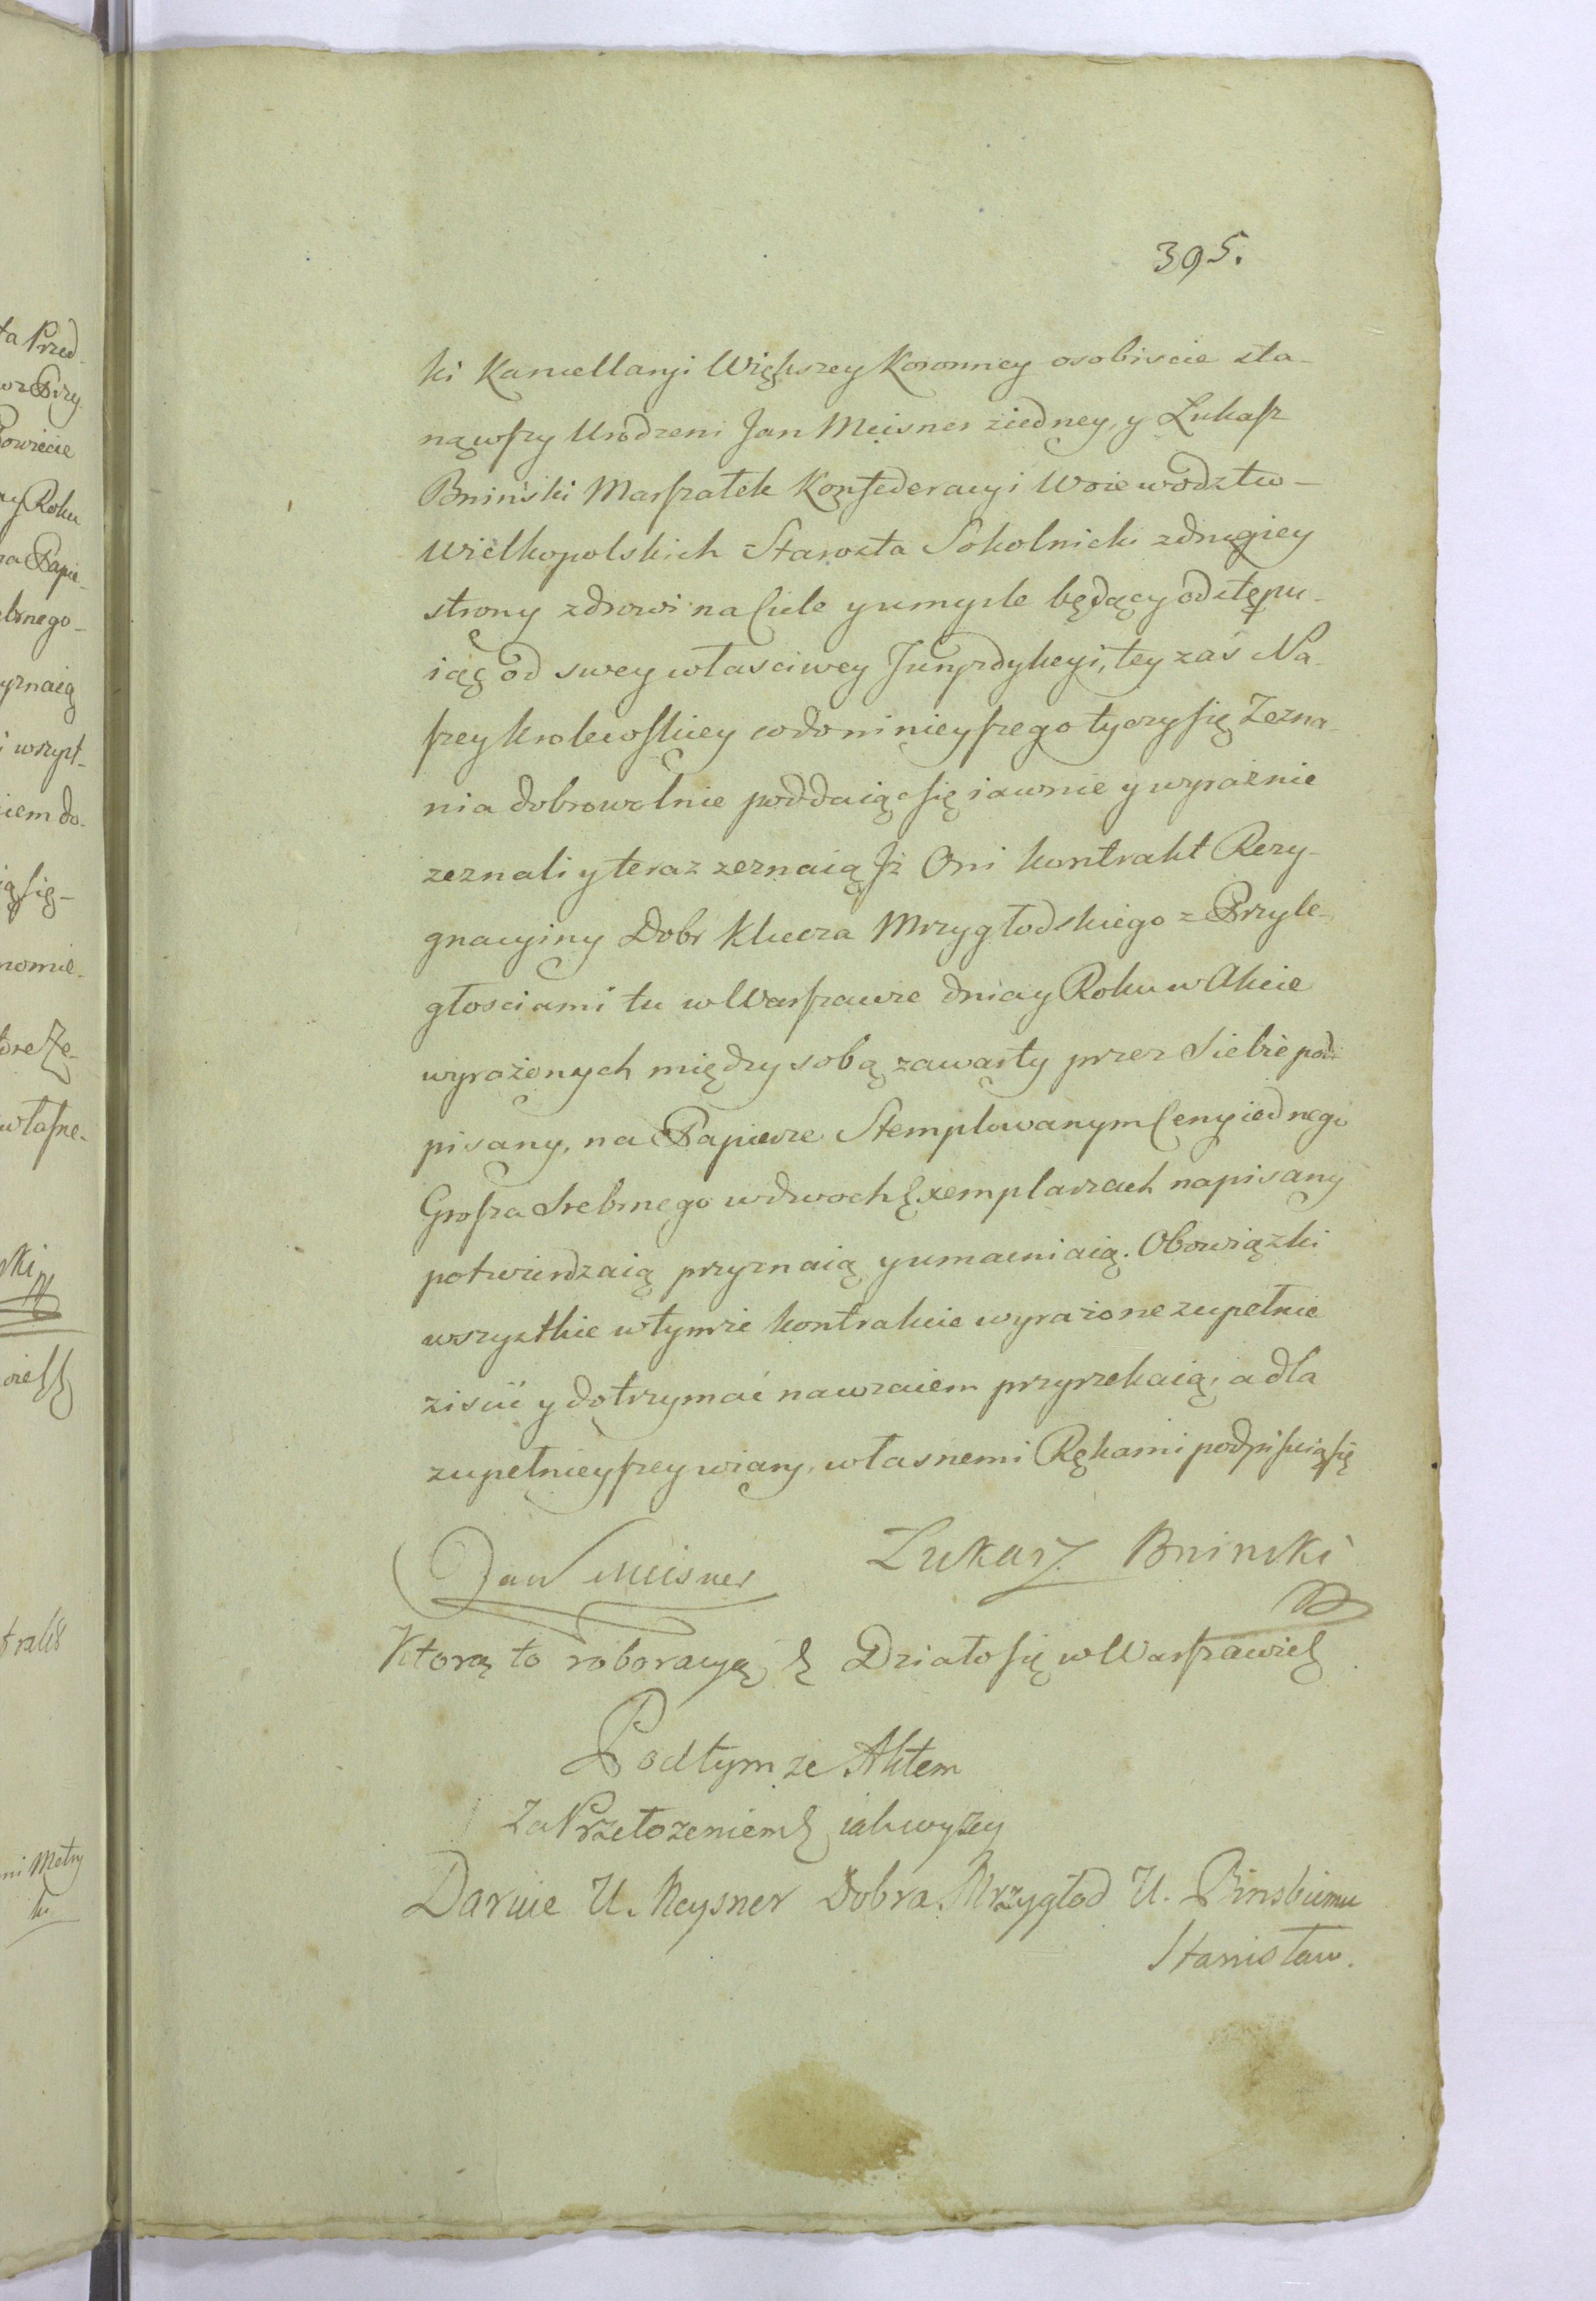 395.
ki Kancellaryi Większey Koronney osobiscie sta-
nąwszy Urodzeni Jan Meisner ziedney, y Łukasz
Bniński Marszałek Konfederacyi Woiewodztw-
Wielkopolskich Starosta Sokolnicki zdrugiey
strony zdrowi na Ciele y umysle będący odstępu-
iąc od swey własciwey Juryzdykcyi, tey zaś Na-
szey Krolewskiey co do ninieyszego tyczy się Zezna-
nia dobrowolnie poddaiąc się iawnie y wyraźnie
zeznali y teraz zeznaią Jż Oni kontrakt Rezy-
gnacyiny Dobr Klucza Mrzygłodskiego z Przyle-
głosciami tu w Warszawie dnia y Roku w Akcie
wyrażonych między sobą zawarty przez Siebie pod-
pisany, na Papierze Stemplowanym Ceny iednego
Grosza Srebrnego w dwoch Exemplarzach napisany
potwierdzaią przyznaią y umacniaią. Obowiązki
wszystkie w tymże kontrakcie wyrażone zupełnie
ziscić y dotrzymać nawzaiem przyrzekaią, a dla
zupełnieyszey wiary, własnemi Rękami podpisuią się
Jan Meisner Łukasz Bninski
Ktorą to roboracyą &c Działo się w Warszawie &c
Pod tymże Aktem
Za Przełożeniem &c iak wyżey
Darwie U. Meysner Dobra Mrzygłod U. Binskiemu
Stanisław.
ta Przed-
Powiecie
ny Roku
na Papie-
ebrnego-
yznaią
i wszyst-
iem do-
ią się-
nomie-
własne-
ski
ni Metry